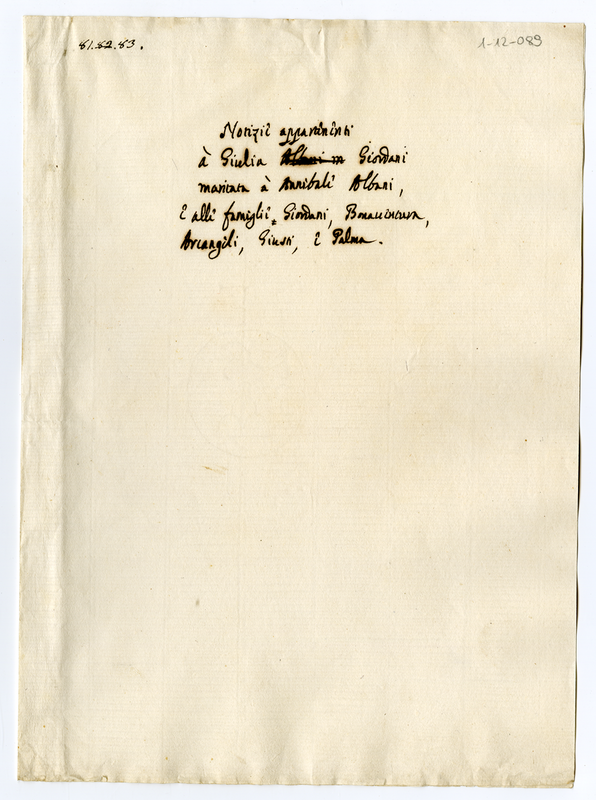 81.82.83.
1-12-089
Notizie appartenenti
à Giulia Albani in Giordani
maritata à Annibale Albani,
e alle famiglie Giordani, Bonaventura,
Arcangeli, Giusti, e Palma.